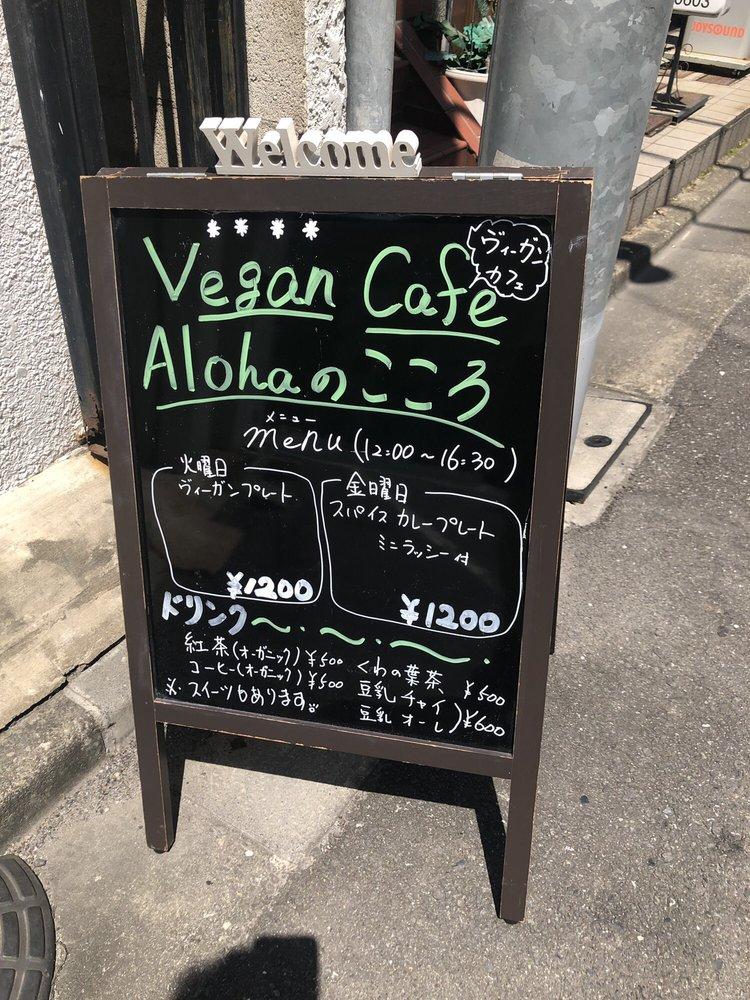 0603
JOYSOUND
Welcome
Vegan Cafe
ヴィーガン
カフェ
Alohaのこころ
メニュー
menu (12:00～16:30)
火曜日
ヴィーガンプレート
¥1200
金曜日
スパイスカレープレート
ミニラッシー付
¥1200
ドリンク
紅茶(オーガニック) ¥500
コーヒー(オーガニック) ¥500
※スイーツもあります
くわの葉茶 ¥500
豆乳チャイ
豆乳オーレ ) ¥600